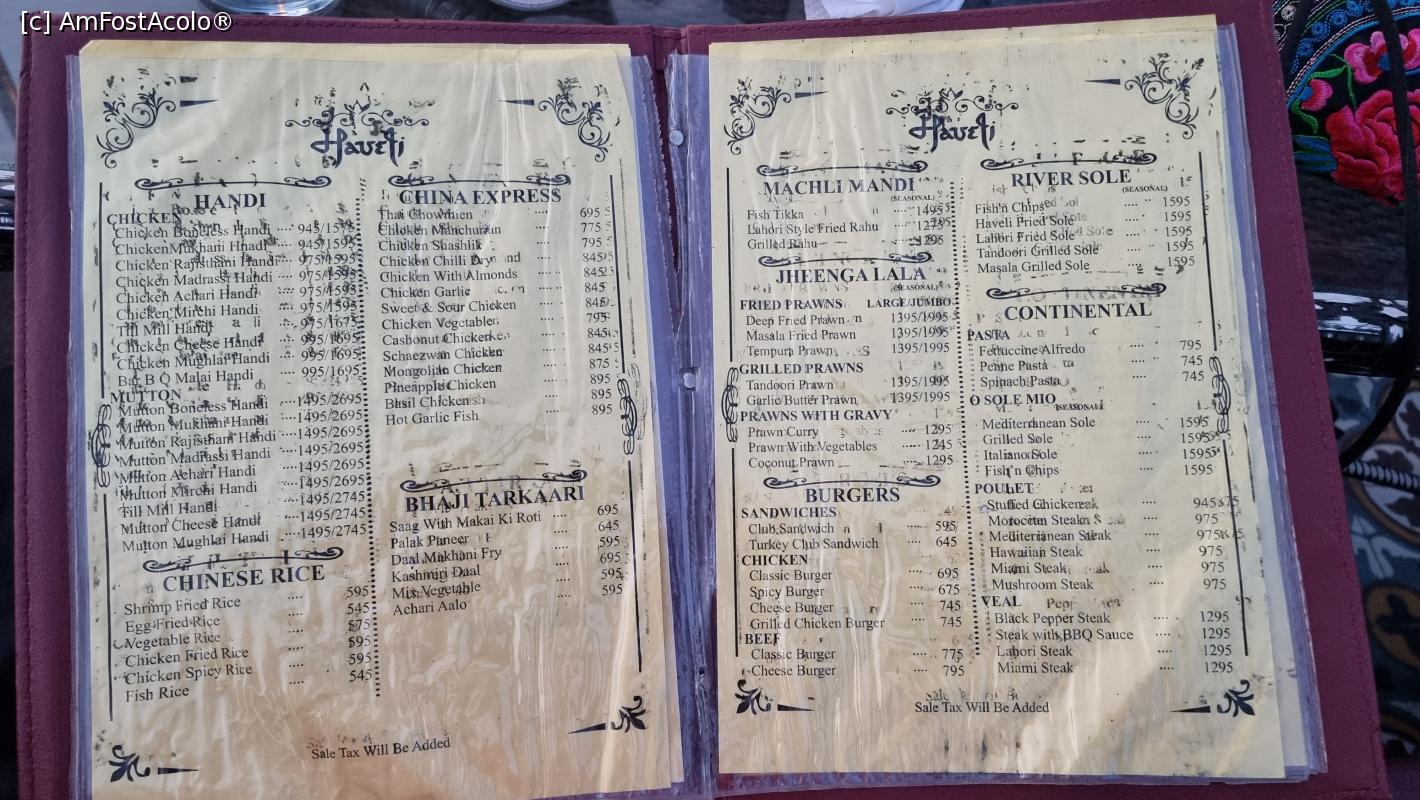 [c] AmFostAcolo®
Haveli
HANDI
CHICKEN
Chicken Boneless Handi 945/1595
Chicken Mukhani Hnadi 945/1595
Chicken Rajsthani Handi 975/1595
Chicken Madrassi Handi 975/1595
Chicken Achari Handi 975/1595
Chicken Mirchi Handi 975/1595
Till Mill Handi 975/1675
Chicken Cheese Handi 995/1695
Chicken Mughlai Handi 995/1695
Bar B Q Malai Handi 995/1695
MUTTON
Mutton Boneless Handi 1495/2695
Mutton Mukhani Handi 1495/2695
Mutton Rajisthani Handi 1495/2695
Mutton Madrassi Handi 1495/2695
Mutton Achari Handi 1495/2695
Mutton Mirchi Handi 1495/2695
Till Mill Handi 1495/2745
Mutton Cheese Handi 1495/2745
Mutton Mughlai Handi 1495/2745
CHINESE RICE
Shrimp Fried Rice 595
Egg Fried Rice 545
Vegetable Rice 575
Chicken Fried Rice 595
Chicken Spicy Rice 595
Fish Rice 545
CHINA EXPRESS
Thai Chowmien 695
Chicken Manchurian 775
Chicken Shashlik 795
Chicken Chilli Dry 845
Chicken With Almonds 845
Chicken Garlic 845
Sweet & Sour Chicken 845
Chicken Vegetable 795
Cashonut Chicken 845
Schaezwan Chicken 845
Mongolian Chicken 875
Pineapple Chicken 895
Basil Chicken 895
Hot Garlic Fish 895
BHAJI TARKAARI
Saag With Makai Ki Roti 695
Palak Paneer 645
Daal Makhani Fry 595
Kashmiri Daal 695
Mix Vegetable 595
Achari Aalo 595
Sale Tax Will Be Added
Haveli
MACHLI MANDI
(SEASONAL)
Fish Tikka 1495
Lahori Style Fried Rahu 1275
Grilled Rahu 1295
JHEENGA LALA
(SEASONAL)
FRIED PRAWNS LARGE/JUMBO
Deep Fried Prawn 1395/1995
Masala Fried Prawn 1395/1995
Tempura Prawn 1395/1995
GRILLED PRAWNS
Tandoori Prawn 1395/1995
Garlic/Butter Prawn 1395/1995
PRAWNS WITH GRAVY
Prawn Curry 1295
Prawn With Vegetables 1245
Coconut Prawn 1295
BURGERS
SANDWICHES
Club Sandwich 595
Turkey Club Sandwich 645
CHICKEN
Classic Burger 695
Spicy Burger 675
Cheese Burger 745
Grilled Chicken Burger 745
BEEF
Classic Burger 775
Cheese Burger 795
RIVER SOLE
(SEASONAL)
Fish'n Chips 1595
Haveli Fried Sole 1595
Lahori Fried Sole 1595
Tandoori Grilled Sole 1595
Masala Grilled Sole 1595
CONTINENTAL
PASTA
Fettuccine Alfredo 795
Penne Pasta 745
Spinach Pasta 745
O SOLE MIO
(SEASONAL)
Mediterranean Sole 1595
Grilled Sole 1595
Italiano Sole 1595
Fish'n Chips 1595
POULET
Stuffed Chicken 945
Moroccan Steak 975
Mediterranean Steak 975
Hawaiian Steak 975
Miami Steak 975
Mushroom Steak 975
VEAL
Black Pepper Steak 1295
Steak with BBQ Sauce 1295
Lahori Steak 1295
Miami Steak 1295
Sale Tax Will Be Added